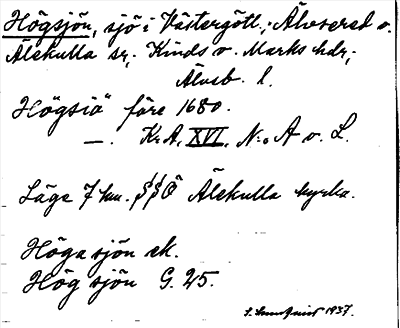 Högsjön, sjö i Västergötl.; Älvsered o.
Älekulla sr, Kinds o. Marks hdr,
Älvsb. l.
"Högsiö" före 1680.
—. K.A. XVI. N:o A o. L.
Läge 7 km. SSÖ Älekulla kyrka.
Höga sjön ek.
Hög sjön G. 25.
1937.